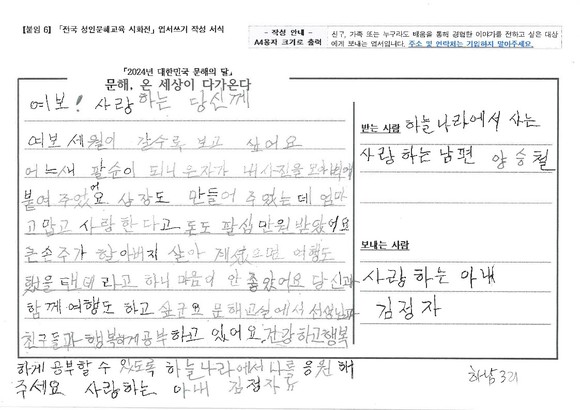 [붙임 6] 「전국 성인문해교육 시화전」 엽서쓰기 작성 서식
- 작성 안내 -
A4용지 크기로 출력
친구, 가족 또는 누구라도 배움을 통해 경험한 이야기를 전하고 싶은 대상
에게 보내는 엽서입니다. 주소 및 연락처는 기입하지 말아주세요.
『2024년 대한민국 문해의 달』
문해, 온 세상이 다가온다
여보! 사랑하는 당신께
여보 세월이 갈수록 보고 싶어요
어느새 팔순이 되니 손자가 내 사진을
붙여 주었어요 상장도 만들어 주었는데 할머
고맙고 사랑한다고 돈도 팔십만원 받았어요
큰손주가 할아버지 살아 계셨으면 여행도
했을 텐데라고 하니 마음이 안 좋았어요 당신과
함께 여행도 하고 싶군요 문해교실에서 선생님과
친구들과 행복하게 공부하고 있어요, 건강하고 행복
하게 공부할 수 있도록 하늘나라에서 나를 응원해
주세요 사랑하는 아내 김정자
받는 사람 하늘나라에서 사는
사랑하는 남편 양승철
보내는 사람
사랑하는 아내
김정자
하남3리